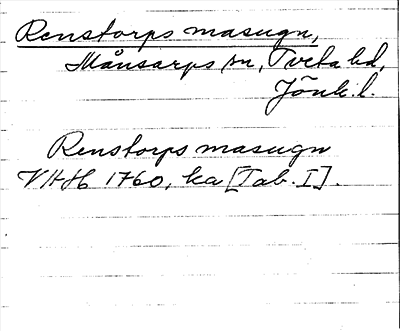 Renstorps masugn,
Månsarps sn, Tveta hd,
Jönk. l.
Renstorps masugn
VHH 1760, ka [Tab. I].